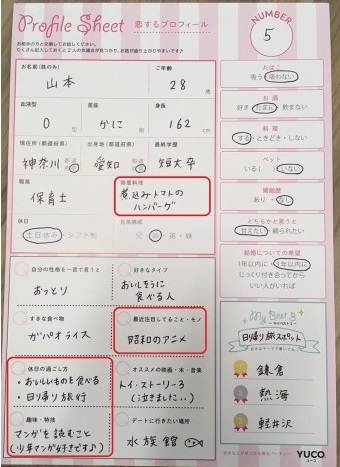 Profile Sheet 恋するプロフィール
NUMBER
5
お名前(姓のみ)
ご年齢
山本
28
歳
血液型
星座
身長
O 型
かに 座
162 cm
現住所(都道府県)
出身地(都道府県)
最終学歴
神奈川
愛知
短大卒
職業
得意料理
保育士
煮込みトマトの
ハンバーグ
休日
土日休み・シフト制
自分の性格を一言で言うと
好きなタイプ
おっとり
おいしそうに
食べる人
すきな食べ物
最近注目してること・モノ
ガパオライス
昭和のアニメ
休日の過ごし方
オススメの映画・本・音楽
・おいしいものを食べる
・日帰り旅行
トイ・ストーリー3
(泣きました…)
趣味・特技
デートに行きたい場所
マンガを読むこと
(少年マンガ好きです♪)
水族館
たばこ
吸う・吸わない
お酒
好き・たまに・飲まない
料理
する・ときどき・しない
ペット
いる( )・いない
婚姻歴
あり・なし
どちらかと言うと
甘えたい・頼られたい
結婚についての希望
1年以内に・3年以内に
じっくり付き合ってから
いい人がいれば
My Best 3
～マイベスト3～
日帰り旅スポット
鎌倉
熱海
軽井沢
YUCO.